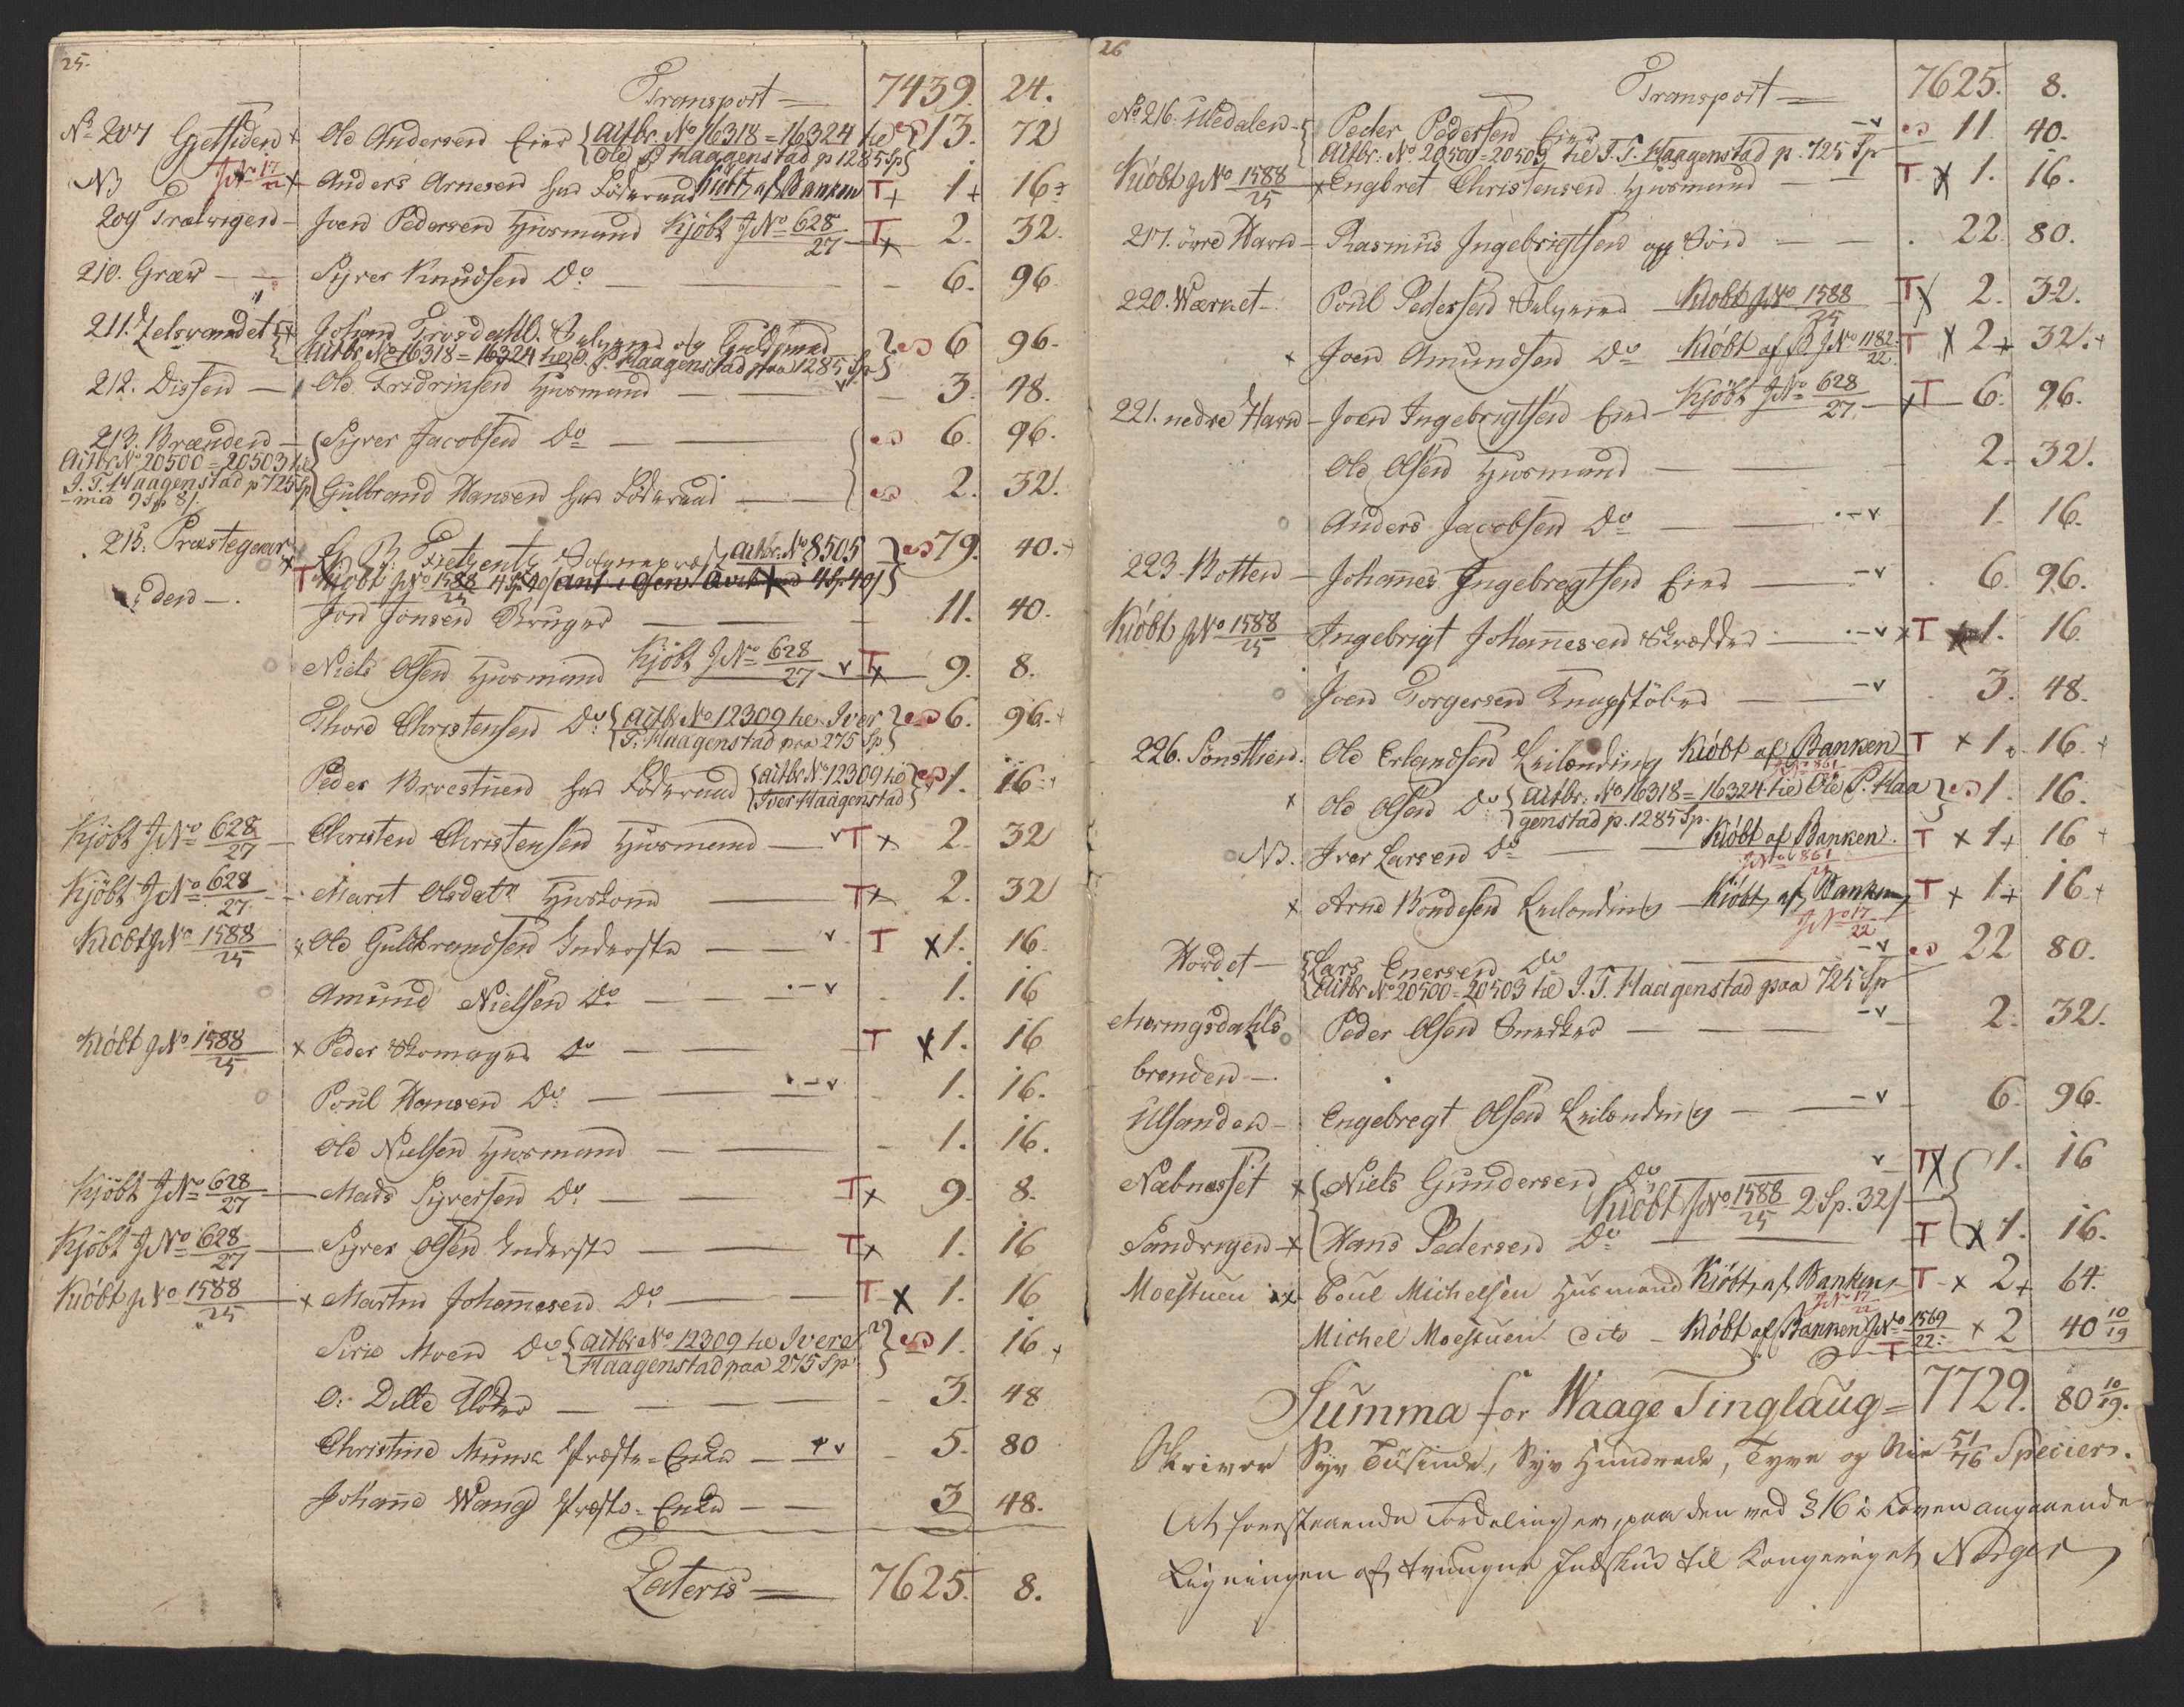 25.
Transport = 7439. 24.
No 207 Gjetsiden Ole Andersen Eier {Actbr. No 16318 = 16324 he Ole P. Haagenstad p 1285 Sp} 13. 72
NB JNo 17/22 x Anders Arnesen har Föderaad Kiöbt af Banken T+ 1+ 16
209 Trælvigen - Joen Pedersen Huusmand Kjöbt JNo 628/27 T x 2. 32.
210. Græv - Syver Knudsen Do - 6. 96.
211. Lelsvandet Johan Trosdahl. Selveier og Guldsmed 6 96.
{Actbr. No 16318 = 16324 he O. P. Haagenstad paa 1285 Sp}
212. Dissen - Ole Fredriksen Huusmand - v 3. 48.
213. Brænden - Syver Jacobsen Do - 6. 96.
Actbr No 20500 = 20503 he
J. T. Haagenstad p 725 Sp Gulbrand Hansen har Föderaad - 2. 32.
med 9 Sp 8/
215. Præstegaar- Hr. P. Fietzentz Sognepræst {Actbr. No 8505} 79. 40.
den - T Kiöbt JNo 1588/25 4 Sp 40/
Jon Jonsen Bruger - 11. 40.
Niels Olsen Huusmand Kjöbt JNo 628/27 v T x 9. 8.
Thore Christensen Do {Actbr No 12309 he Iver T. Haagenstad paa 275 Sp} 6. 96.
Peder Broestuen har Föderaad {Actbr No 12309 he Iver Haagenstad} 1. 16.
Kjöbt JNo 628/27 - Christen Christensen Huusmand - v T x 2. 32
Kjöbt JNo 628/27 - Marit Olsdatr Huuskone - T x 2. 32
Kiöbt JNo 1588/25 x Ole Guldbrandsen Inderste - v T x 1. 16.
Amund Nielsen Do - v 1. 16
Kiöbt JNo 1588/25 x Peder Skomager Do - T x 1. 16
Poul Hansen Do - v 1. 16.
Ole Nielsen Huusmand - 1. 16.
Kjöbt JNo 628/27 - Mads Syversen Do - T x 9. 8.
Kjöbt JNo 628/27 - Syver Olsen Inderste - T x 1. 16
Kiöbt JNo 1588/25 x Martin Johannesen Do - T x 1. 16
Sirie Moen Do {Actbr No 12309 he Iver Haagenstad paa 275 Sp} 1. 16
O: Dille - 3. 48
Christine Munk Præste-Enke - v 5. 80
Johanne Wang Præste-Enke - 3 48.
Lateris = 7625. 8.
26
Transport = 7625. 8.
No 216. Uledalen - Peder Pedersen Eier - v 11. 40.
Actbr: No 20500 = 20503 he J. T. Haagenstad p. 725 Sp
Kiöbt JNo 1588/25 x Engbret Christensen Huusmand - T x 1. 16.
217. övre Havn - Rasmus Ingebrigtsen og Sön - 22. 80.
220. Wærket - Poul Pedersen Selveier Kiöbt JNo 1588/25 T x 2. 32.
x Joen Amundsen Do Kiöbt af B JNo 1182/22 T x 2+ 32.+
221. nedre Havn - Joen Ingebrigtsen Eier - Kjöbt JNo 628/27 x T 6. 96.
Ole Olsen Huusmand - 2. 32.
Anders Jacobsen Do - v 1. 16.
223. Botten - Johannes Ingebregtsen Eier - v 6. 96.
Kiöbt JNo 1588/25 Ingebrigt Johannesen Skrædder - v x T 1. 16.
Joen Torgersen Knapstöber - v 3. 48.
226. Sönstlien. Ole Erlandsen Leilending Kiöbt af Banken T x 1. 16.+
JNo 861
x Ole Olsen Do {Actbr. No 16318 = 16324 he Ole P. Haagenstad p. 1285 Sp.} 1. 16.
NB. Iver Larsen Do - Kiöbt af Banken. T x 1+ 16+
JNo 861
x Arne Bondesen Leilending - Kiöbt af Banken T x 1+ 16+
JNo 17/22
Hordet - Lars Enersen Do - v 22 80.
Actbr No 20500 = 20503 he J. T. Haagenstad paa 725 Sp
Moringsdahls- Peder Olsen Snedker - v 2. 32.
brenden -
Ulsanden - Engebregt Olsen Leilending - v 6. 96.
Nabnæsset x Niels Gundersen Do v T x 1. 16
Kiöbt JNo 1588/25 2 Sp. 32/
Sandvigen x Hans Pedersen Do - T x 1. 16.
Moestuen x Poul Michelsen Huusmand Kiöbt af Banken T x 2+ 64.
JNo 17/22
Michel Moestuen dito - Kiöbt af Banken JNo 1569/22 T x 2 40 10/19
Summa for Waage Tinglaug = 7729. 80 10/19.
Skriver Syv Tusinde, Syv Hundrede, Tyve og Nie 51/76 Species.
At foranstaaende Fordeling er, paa den ved § 16 i Loven angaaende
Ligningen af tvungne Indskud til Kongeriget Norges